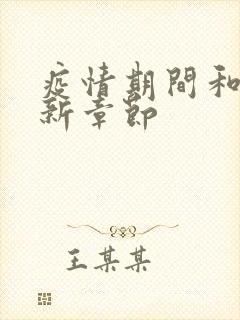 疫情期間和
新章節
王某某